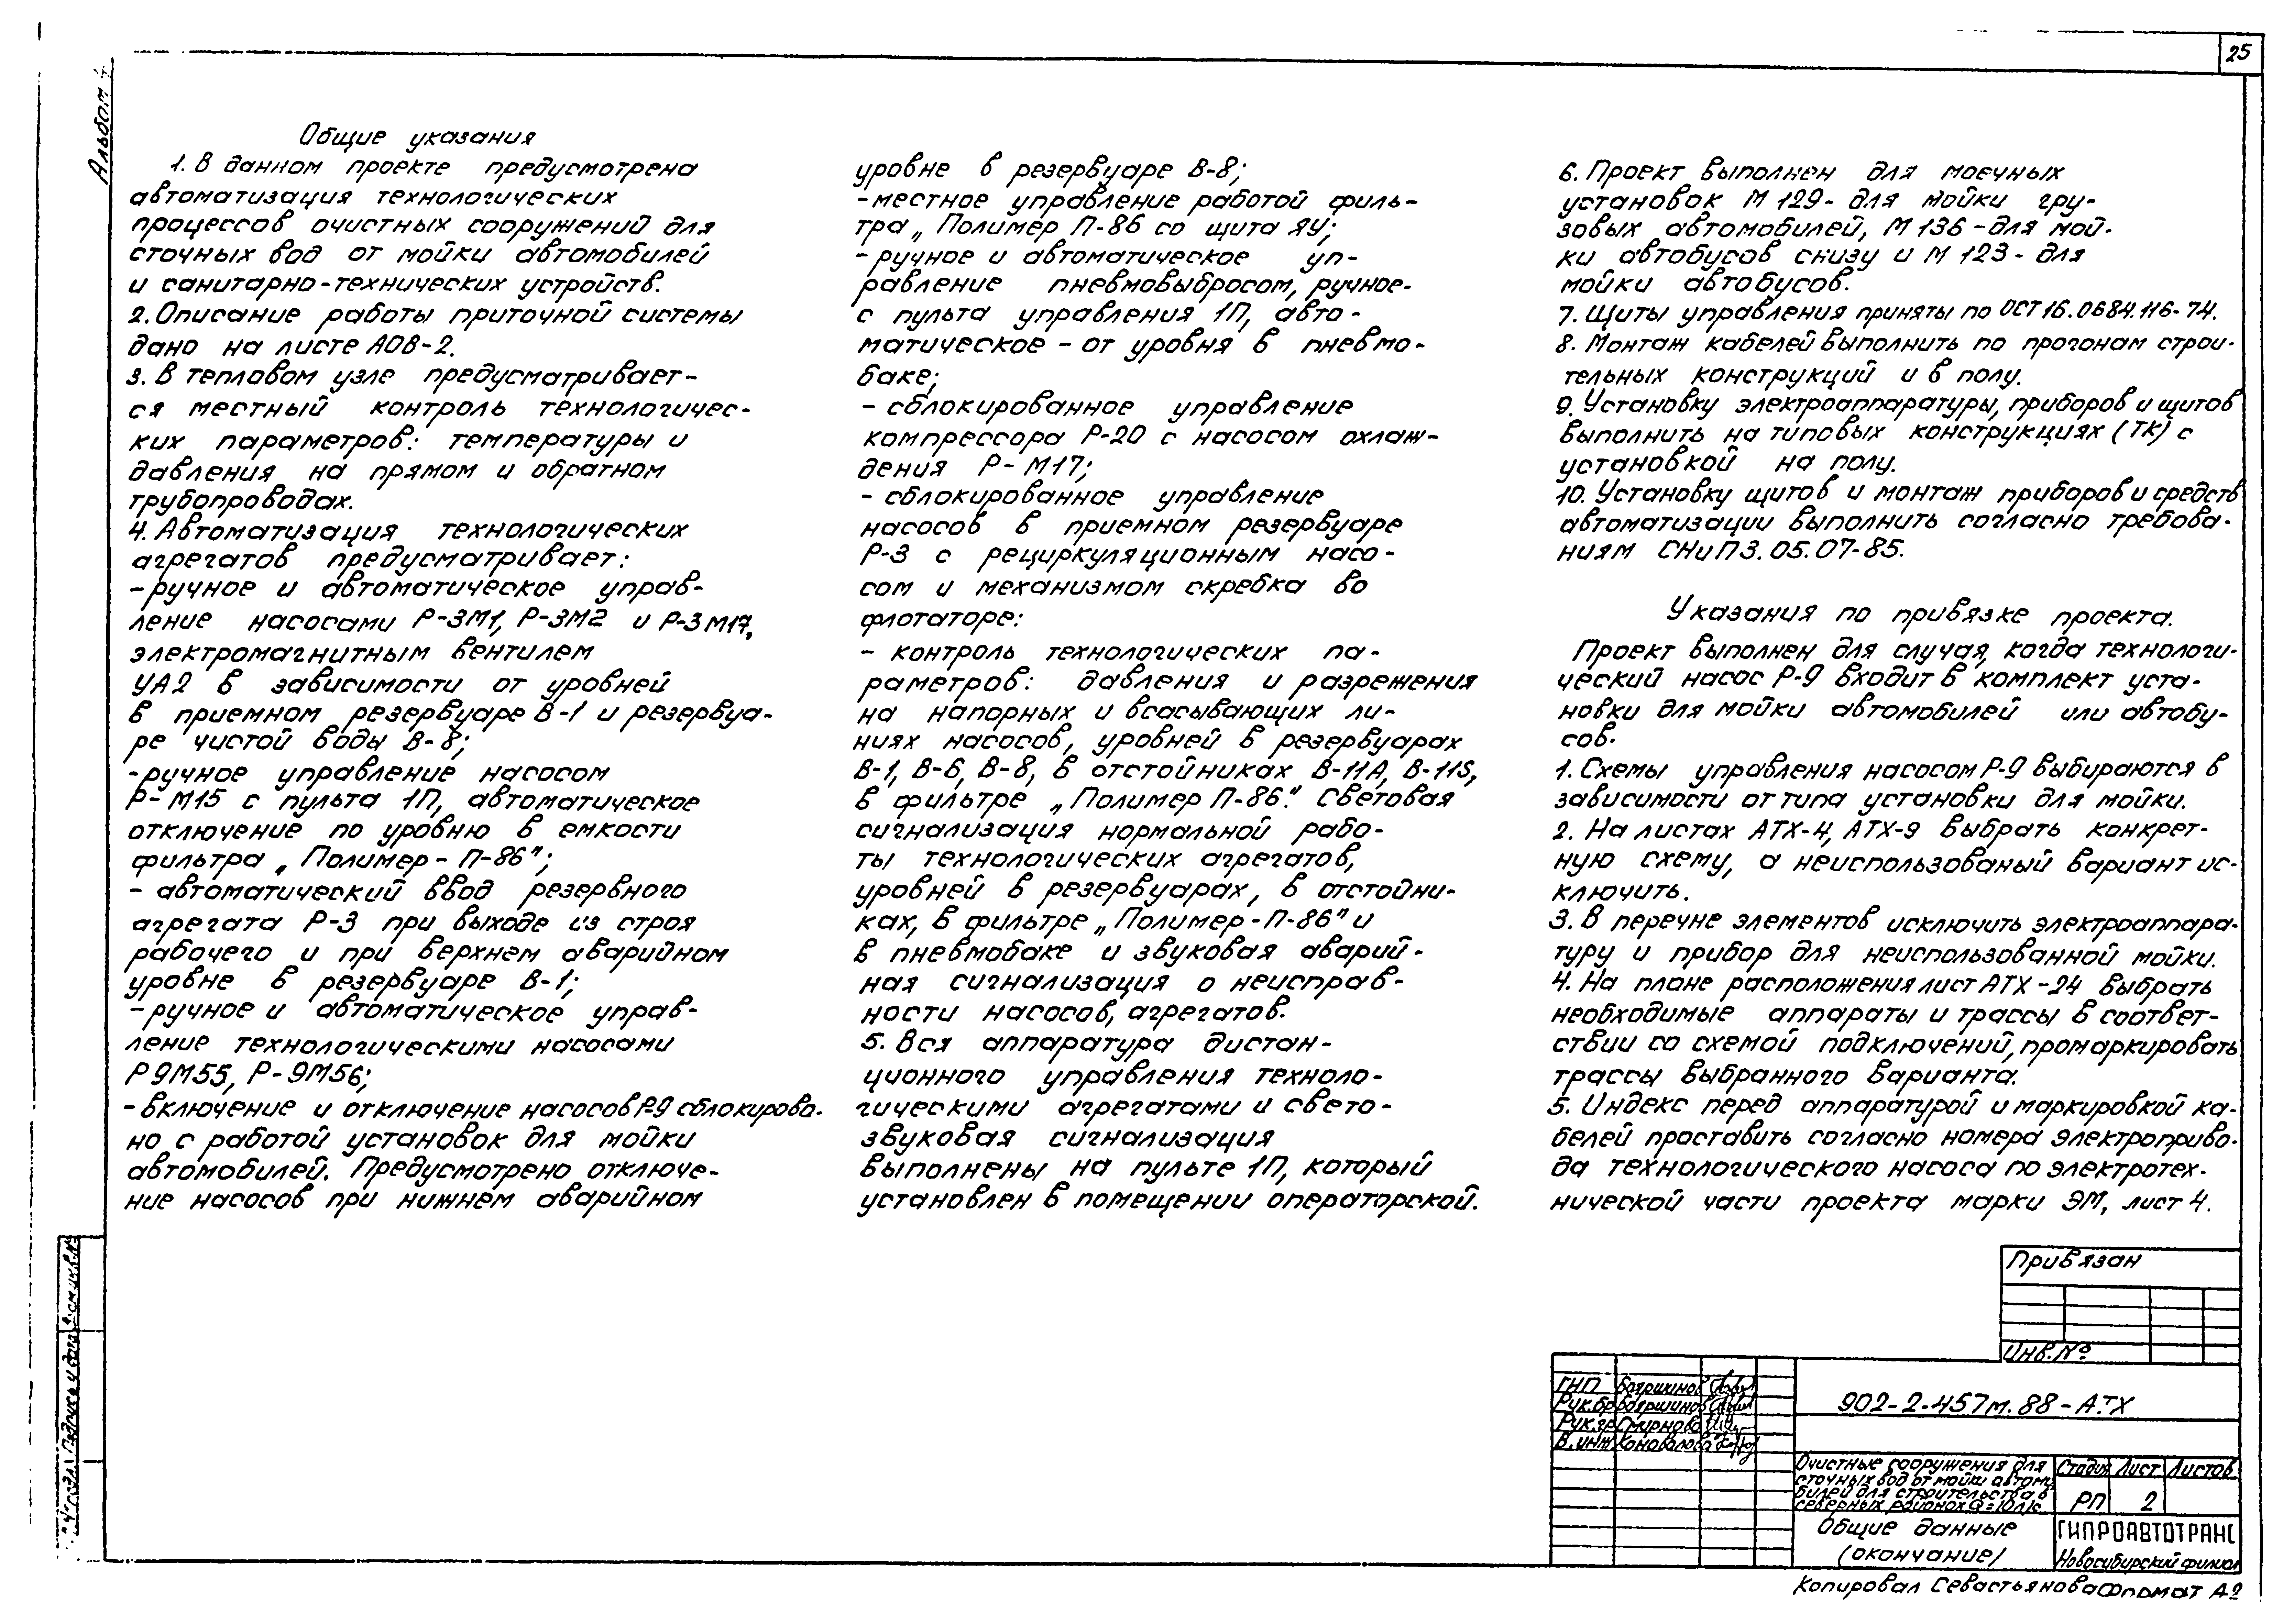 25
Альбом 4
Общие указания
1. В данном проекте предусмотрена
автоматизация технологических
процессов очистных сооружений для
сточных вод от мойки автомобилей
и санитарно-технических устройств.
2. Описание работы приточной системы
дано на листе АОВ-2.
3. В тепловом узле предусматривает-
ся местный контроль технологичес-
ких параметров: температуры и
давления на прямом и обратном
трубопроводах.
4. Автоматизация технологических
агрегатов предусматривает:
-ручное и автоматическое управ-
ление насосами Р-3М1, Р-3М2 и Р-3М17,
электромагнитным вентилем
УА2 в зависимости от уровней
в приемном резервуаре В-1 и резервуа-
ре чистой воды В-8;
-ручное управление насосом
Р-М15 с пульта 1П, автоматическое
отключение по уровню в емкости
фильтра „Полимер-П-86";
- автоматический ввод резервного
агрегата Р-3 при выходе из строя
рабочего и при верхнем аварийном
уровне в резервуаре В-1;
-ручное и автоматическое управ-
ление технологическими насосами
Р9М55, Р-9М56;
-включение и отключение насосов Р-9 сблокирова-
но с работой установок для мойки
автомобилей. Предусмотрено отключе-
ние насосов при нижнем аварийном
уровне в резервуаре В-8;
-местное управление работой филь-
тра „Полимер П-86 со щита ЯУ;
-ручное и автоматическое уп-
равление пневмовыбросом, ручное-
с пульта управления 1П, авто-
матическое - от уровня в пневмо-
баке;
- сблокированное управление
компрессора Р-20 с насосом охлаж-
дения Р-М17;
- сблокированное управление
насосов в приемном резервуаре
Р-3 с рециркуляционным насо-
сом и механизмом скребка во
флотаторе:
- контроль технологических па-
раметров: давления и разрежения
на напорных и всасывающих ли-
ниях насосов, уровней в резервуарах
В-1, В-6, В-8, в отстойниках В-11А, В-11Б,
в фильтре „Полимер П-86." Световая
сигнализация нормальной рабо-
ты технологических агрегатов,
уровней в резервуарах, в отстойни-
ках, в фильтре „Полимер-П-86" и
в пневмобаке и звуковая аварий-
ная сигнализация о неисправ-
ности насосов, агрегатов.
5. Вся аппаратура дистан-
ционного управления техноло-
гическими агрегатами и свето-
звуковая сигнализация
выполнены на пульте 1П, который
установлен в помещении операторской.
6. Проект выполнен для моечных
установок М 129- для мойки гру-
зовых автомобилей, М 136 -для мой-
ки автобусов снизу и М 123- для
мойки автобусов.
7. Щиты управления приняты по ОСТ16.0684.116-74.
8. Монтаж кабелей выполнить по прогонам строи-
тельных конструкций и в полу.
9. Установку электроаппаратуры, приборов и щитов
выполнить на типовых конструкциях (ТК) с
установкой на полу.
10. Установку щитов и монтаж приборов и средств
автоматизации выполнить согласно требова-
ниям СНиП3.05.07-85.
Указания по привязке проекта.
Проект выполнен для случая, когда технологи-
ческий насос Р-9 входит в комплект уста-
новки для мойки автомобилей или автобу-
сов.
1. Схемы управления насосом Р-9 выбираются в
зависимости от типа установки для мойки.
2. На листах АТХ-4, АТХ-9 выбрать конкрет-
ную схему, а неиспользованый вариант ис-
ключить.
3. В перечне элементов исключить электроаппара-
туру и прибор для неиспользованной мойки.
4. На плане расположения лист АТХ-24 выбрать
необходимые аппараты и трассы в соответ-
ствии со схемой подключений, промаркировать
трассы выбранного варианта.
5. Индекс перед аппаратурой и маркировкой ка-
белей проставить согласно номера электроприво-
да технологического насоса по электротех-
нической части проекта марки ЭМ, лист 4.
Привязан
Инв.№
ГИП Бояршинов
Рук.бр Бояршинов
Рук.гр Смирнова
В.инж Коновалова
902-2-457м.88-АТХ
Очистные сооружения для
сточных вод от мойки автомо
билей для строительства в
северных районах Q=10л/с
Стадия Лист Листов
РП 2
Общие данные
(окончание)
ГИПРОАВТОТРАНС
Новосибирский филиал
Подпись и дата
Копировал Севастьянова Формат А2